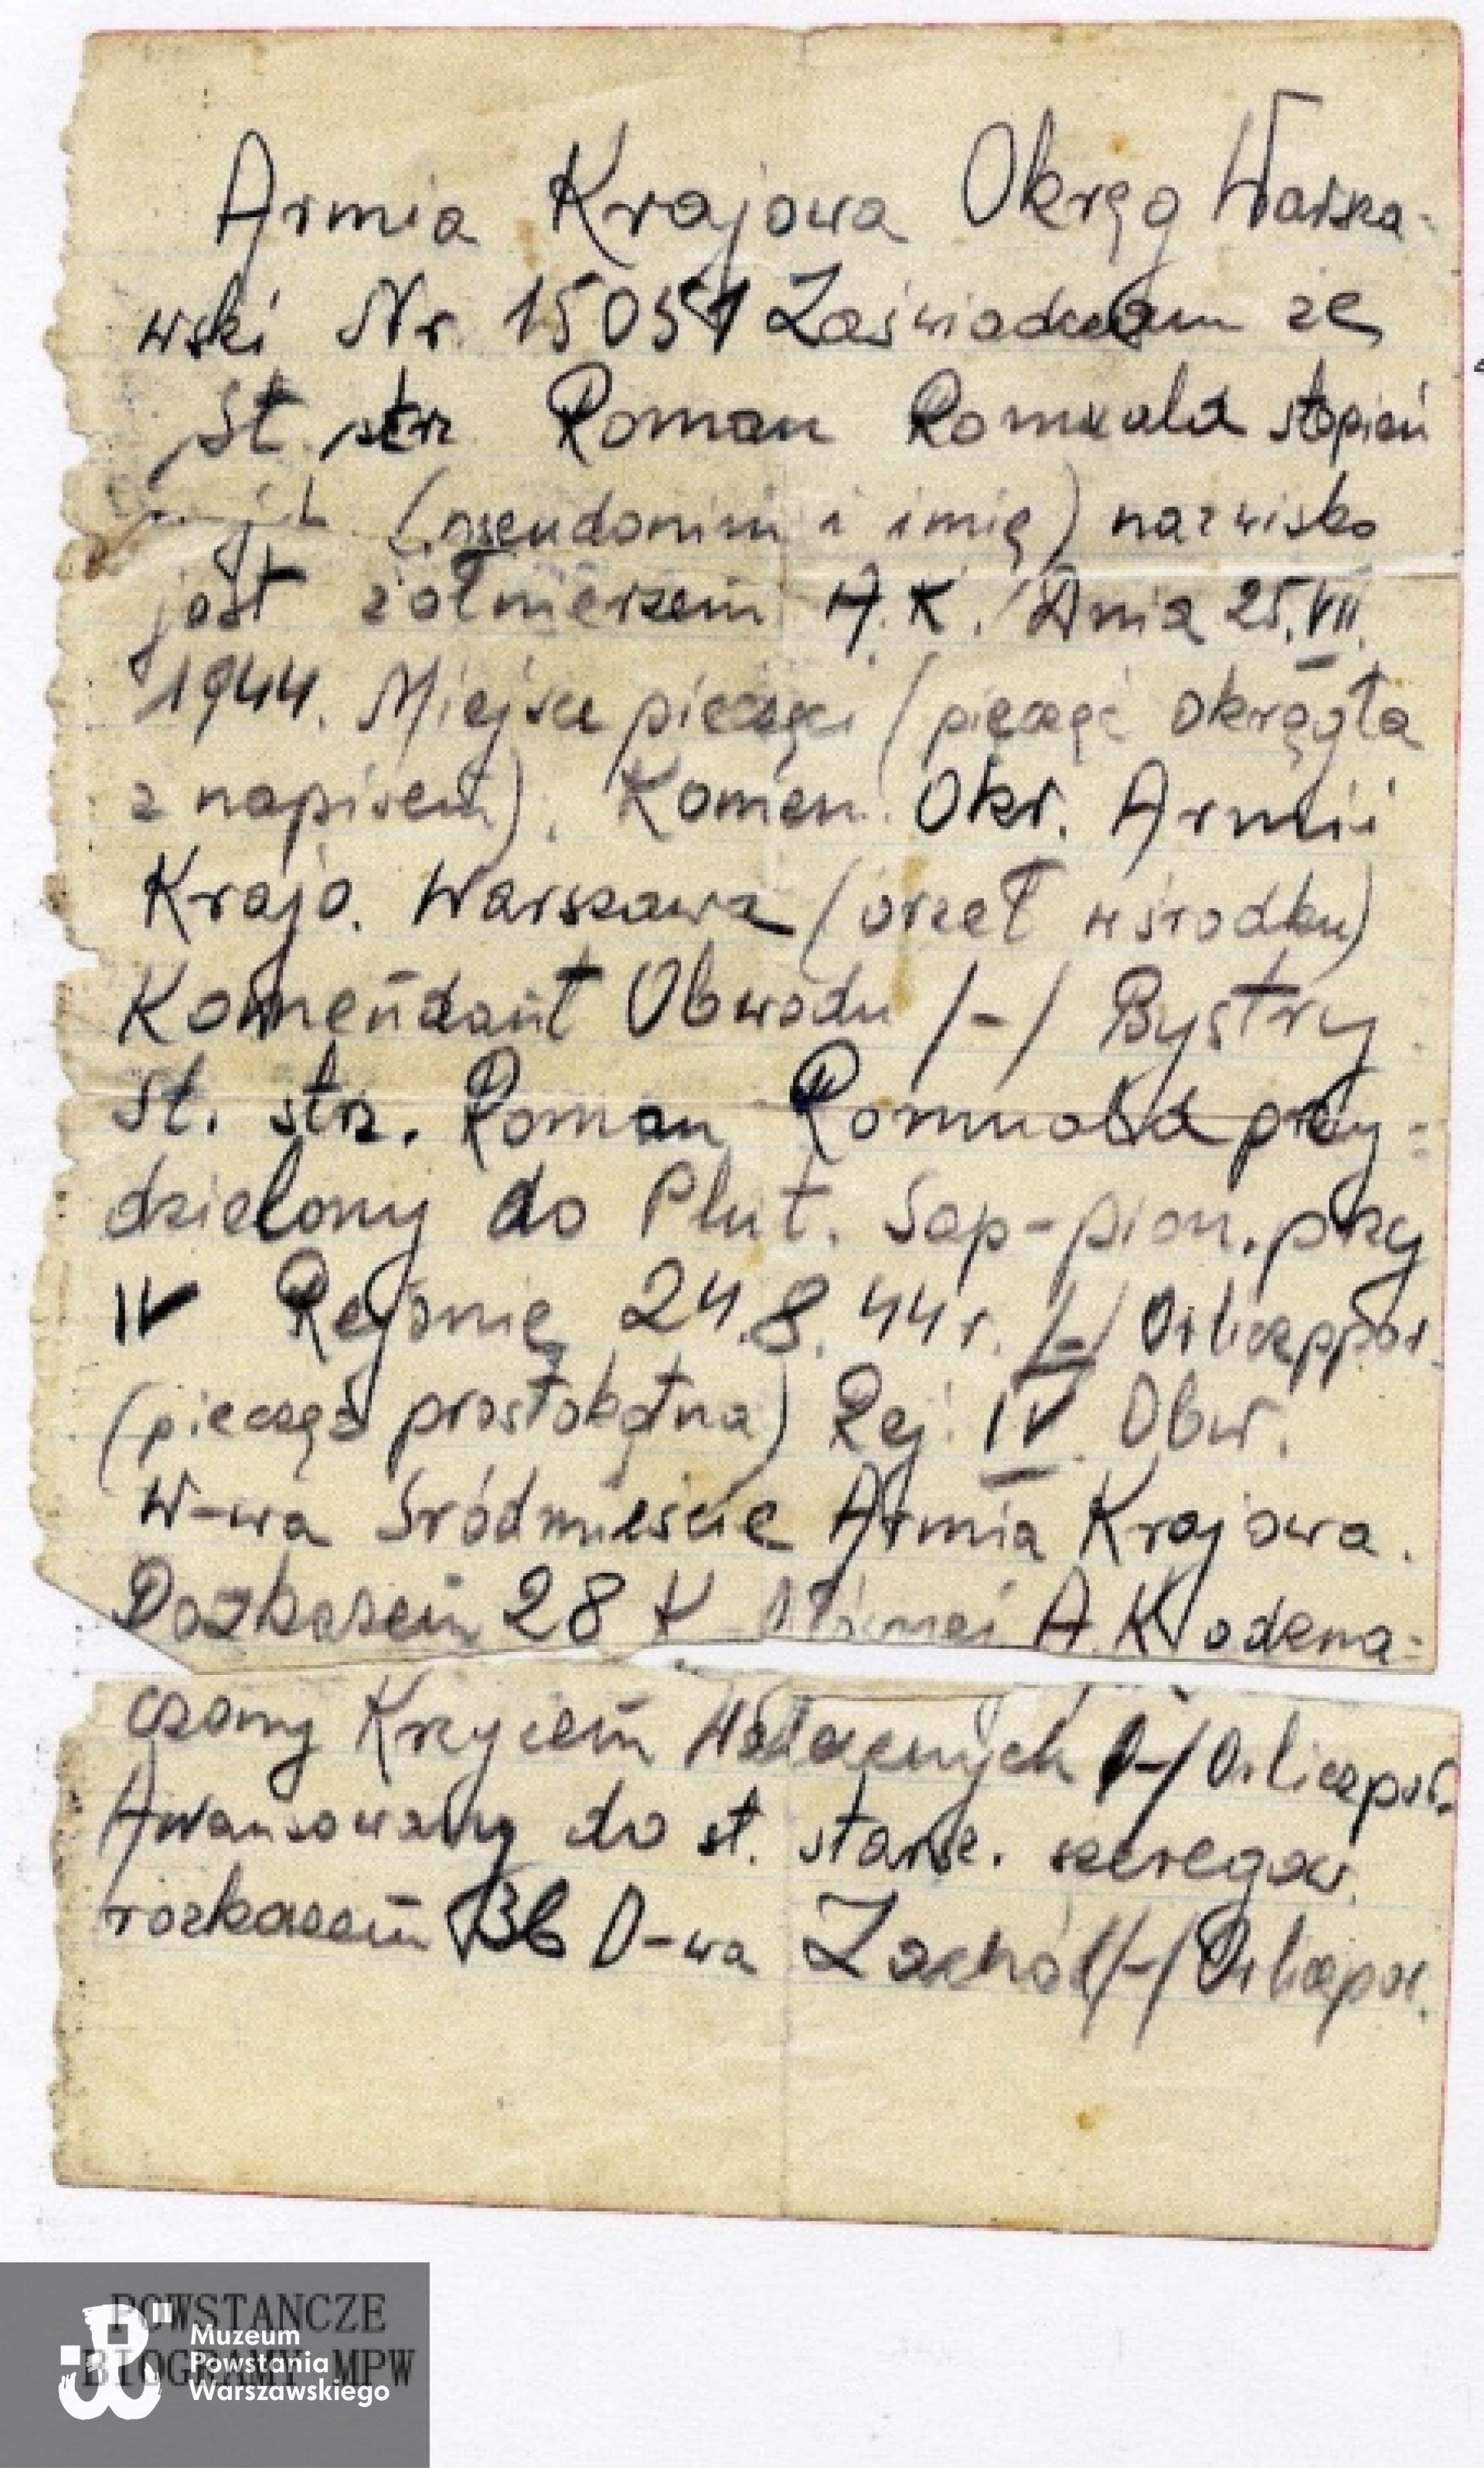 Armia Krajowa Okręg Warsza-
wski Nr. 15051 Zaświadczam że
St. str. Roman Romuald stopień
(pseudonim i imię) nazwisko
jest żołnierzem A.K. Dnia 25.VII.
1944. Miejsce pieczęci (pięczęć okrągła
z napisem). Komen. Okr. Armii
Krajo. Warszawa (orzeł w środku)
Komendant Obwodu /-/ Bystry
St. str. Roman Romuald przy-
dzielony do Plut. Sap-pion. przy
IV Rejonie 24.8.44 r. /-/ Orlicz ppor.
(pieczęć prostokątna) Rej. IV. Obw.
W-wa Śródmieście Armia Krajowa.
Rozkazem 28 K Głównej A.K. odzna-
czony Krzyżem Walecznych /-/ Orlicz por.
Awansowany do st. starsz. szeregow.
rozkazem 36 D-wa Zachód /-/ Orlicz por.
POWSTANCZE
BIOGRAMY MPW
Muzeum
Powstania
Warszawskiego